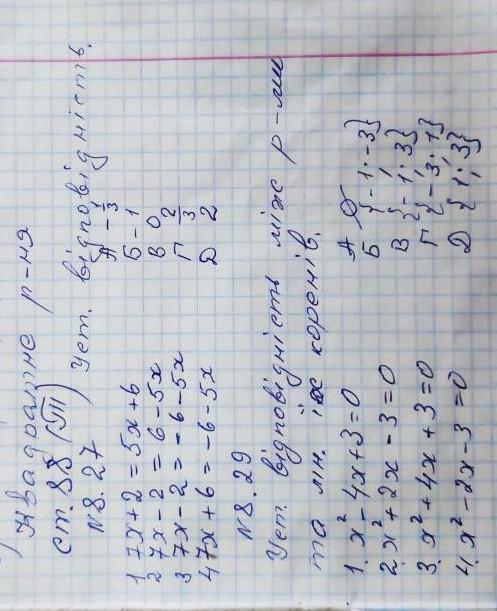 Квадратне р-ня
ст. 88 (VII)
N8.27 Уст. відповідність.
1 7x+2=5x+6 А -1/3
2 7x-2=6-5x Б -1
3 7x-2=-6-5x В 0
4 7x+6=-6-5x Г 2/3
Д 2
N8.29
Уст. відповідність між р-ми
та мн. їх коренів.
1. x²-4x+3=0 А ∅
2. x²+2x-3=0 Б {-1; -3}
3. x²+4x+3=0 В {-1; 3}
4. x²-2x-3=0 Г {-3; 1}
Д {1; 3}